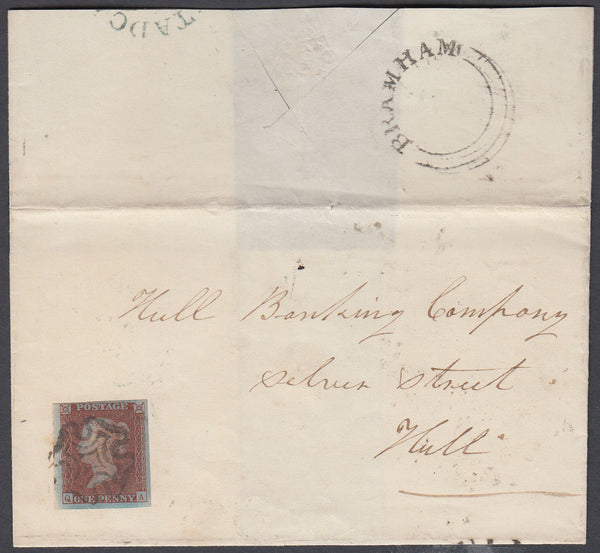 TADC
BRAMHAM
Hull Banking Company
Selver Street
Hull
POSTAGE
Q A
ONE PENNY